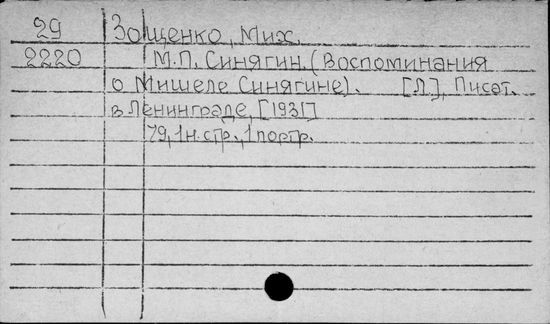 29 Зощенко, Мих.
2220 М.П. Синягин. (Воспоминания
о Мишеле Синягине). [Л], Писат.
в Ленинграде, [1931]
79, 1 н. стр., 1 портр.